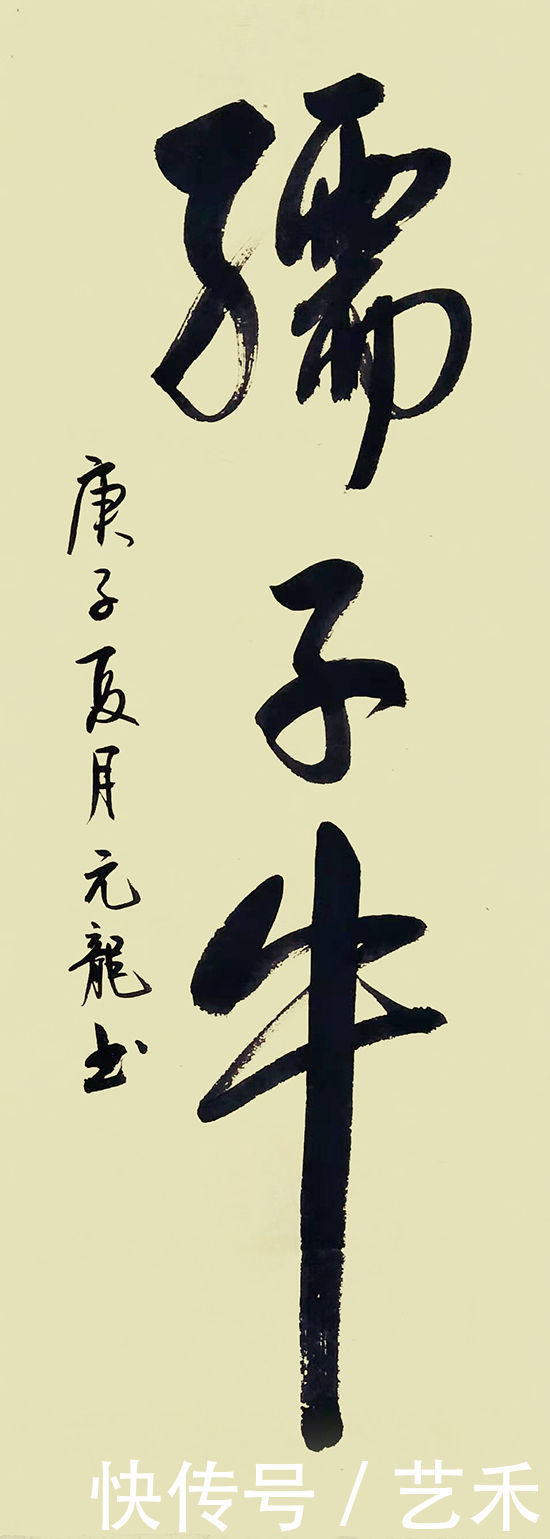 孺子牛
庚子夏月元龍书
快传号/艺禾